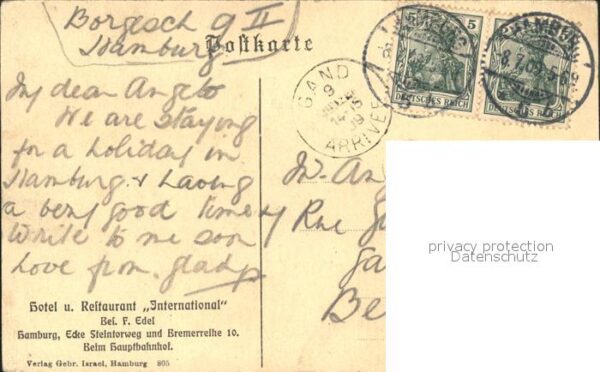 Borgesch 9 II
Hamburg
Postkarte
My dear Angelo
We are staying
for a holiday in
Hamburg & having
a very good time
Write to me soon
love from Gladys
Hotel u. Restaurant „International"
Bes. F. Edel
Hamburg, Ecke Steintorweg und Bremerreihe 10.
Beim Hauptbahnhof.
Verlag Gebr. Israel, Hamburg 805
5
5
DEUTSCHES REICH
DEUTSCHES REICH
HAMBURG
8.7.
5-6
GAND
9
ARRIVEE
Mr. An
Rue
Ga
Be
privacy protection
Datenschutz